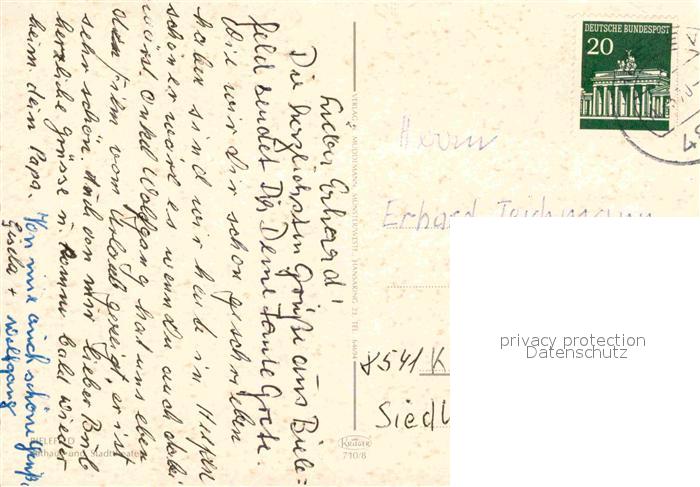 Lieber Erhard!
Die herzlichsten Grüße aus Biele=
feld sendet Dir Deine Tante Grete.
Wie wir Dir schon geschrieben
haben sind wir heute in
schöner wäre es wenn Du auch dabei
wärst. Onkel Wolfgang hat uns eben
den Film vom Urlaub gezeigt, er ist
sehr schön. Auch von mir lieber Bub
herzliche Grüsse u. komm bald wieder
heim. dein Papa.
Von mir auch schöne Grüße
Gisela + Wolfgang
BIELEFELD
Rathaus und Stadttheater
VERLAG
MÜNSTER/WESTF., HANSARING 23, TEL. 64094
Krüger
710/8
DEUTSCHE BUNDESPOST
20
Herrn
Erhard Teichmann
8541 K
Siedl
privacy protection
Datenschutz